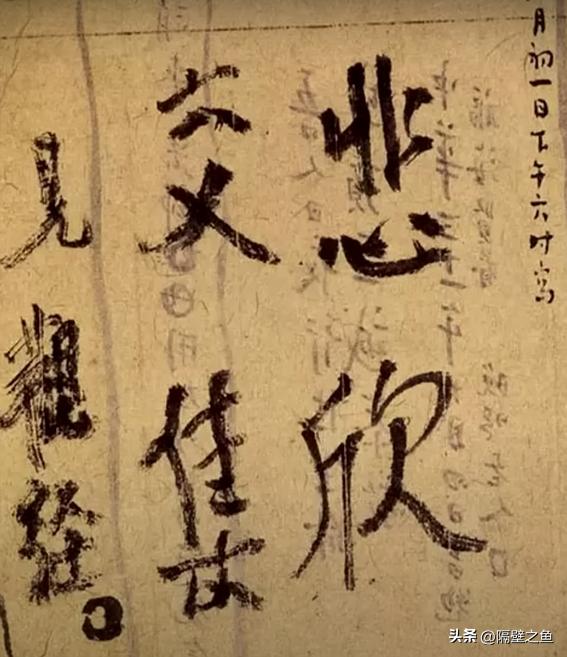 月初一日下午六时写
悲欣
交集
見觀經
头条 @隔壁之鱼